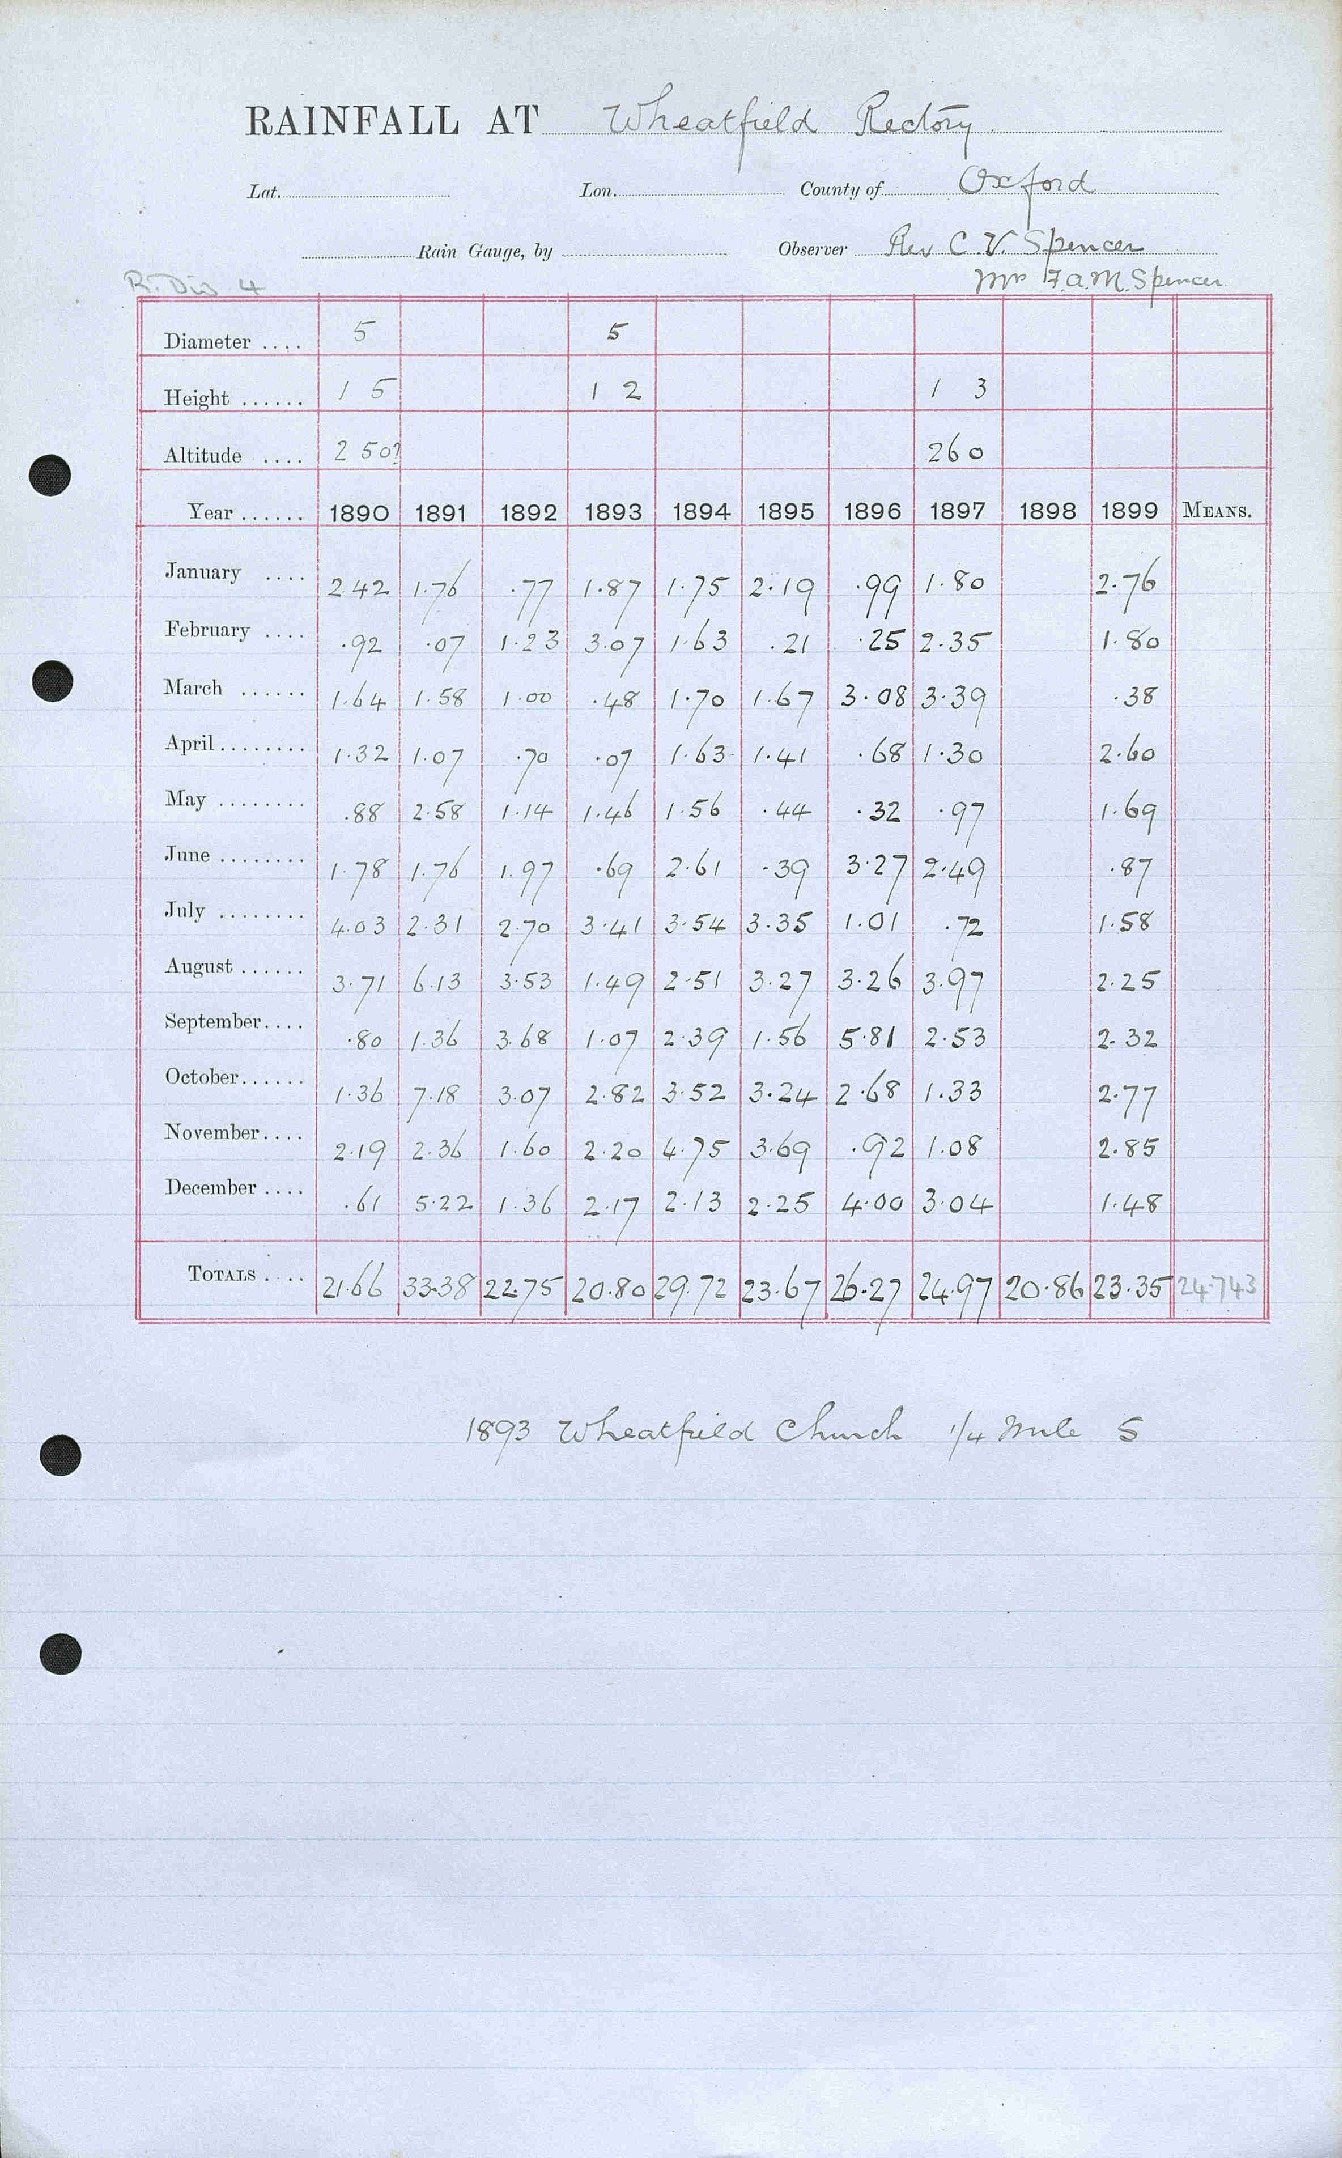 RAINFALL AT Wheatfield Rectory
Lat. Lon. County of Oxford
Rain Gauge, by Observer Rev C. V. Spencer
R. Div 4 Mr F. A. M. Spencer
Diameter .... 5 5
Height ...... 1 5 1 2 1 3
Altitude .... 250? 260
Year ...... 1890 1891 1892 1893 1894 1895 1896 1897 1898 1899 MEANS.
January .... 2.42 1.76 .77 1.87 1.75 2.19 .99 1.80 2.76
February .... .92 .07 1.23 3.07 1.63 .21 .25 2.35 1.80
March ...... 1.64 1.58 1.00 .48 1.70 1.67 3.08 3.39 .38
April ........ 1.32 1.07 .70 .07 1.63 1.41 .68 1.30 2.60
May ........ .88 2.58 1.14 1.46 1.56 .44 .32 .97 1.69
June ........ 1.78 1.76 1.97 .69 2.61 .39 3.27 2.49 .87
July ........ 4.03 2.31 2.70 3.41 3.54 3.35 1.01 .72 1.58
August ...... 3.71 6.13 3.53 1.49 2.51 3.27 3.26 3.97 2.25
September.... .80 1.36 3.68 1.07 2.39 1.56 5.81 2.53 2.32
October...... 1.36 7.18 3.07 2.82 3.52 3.24 2.68 1.33 2.77
November.... 2.19 2.36 1.60 2.20 4.75 3.69 .92 1.08 2.85
December .... .61 5.22 1.36 2.17 2.13 2.25 4.00 3.04 1.48
TOTALS .... 21.66 33.38 22.75 20.80 29.72 23.67 26.27 24.97 20.86 23.35 24.743
1893 Wheatfield Church 1/4 mile S